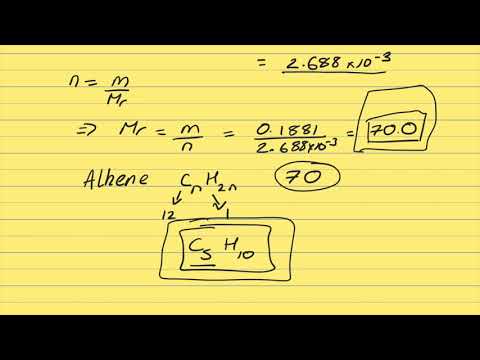 = 2.688 x10⁻³
n = m/Mr
⇒ Mr = m/n = 0.1881/2.688x10⁻³ = 70.0
Alkene CₙH₂ₙ 70
12 1
C₅ H₁₀